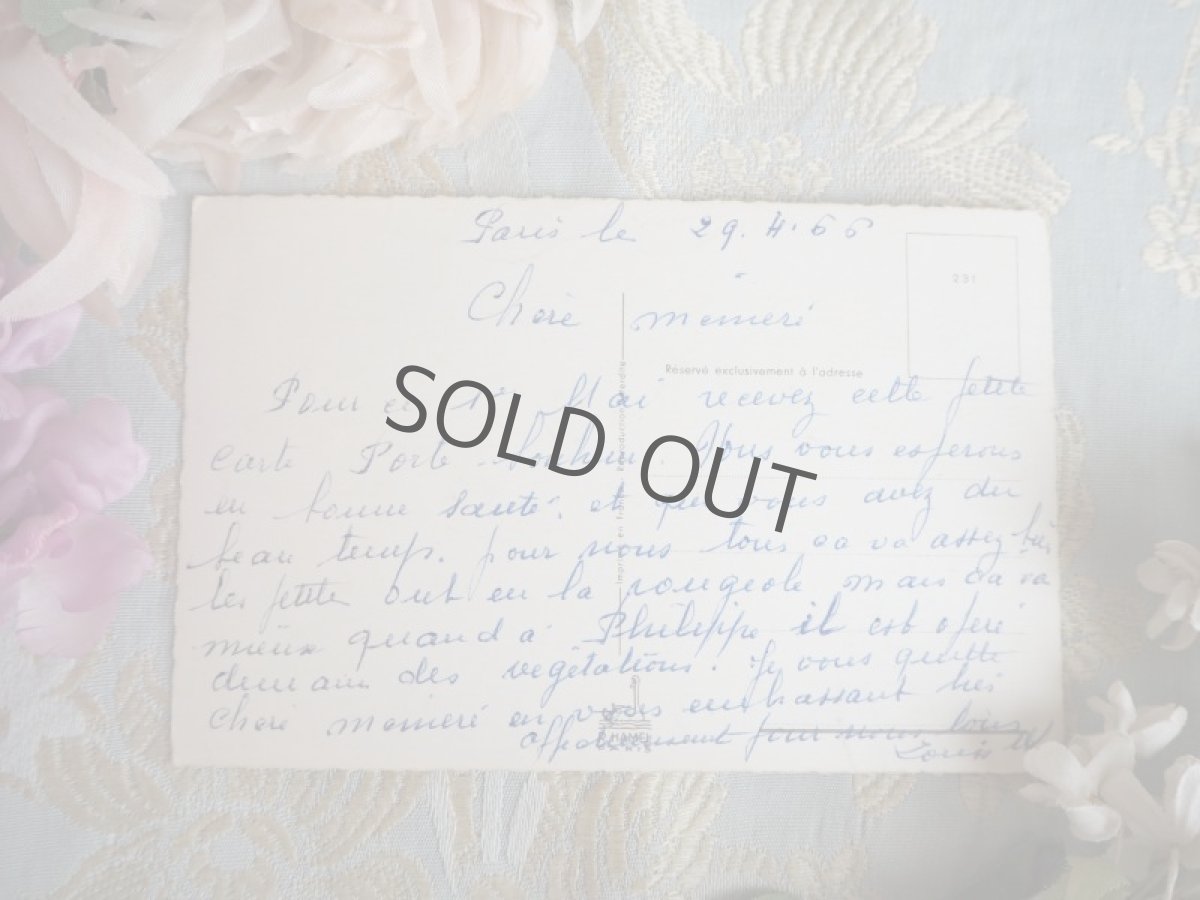 Paris le 29.4.66
231
Chère mémeré
Réservé exclusivement à l'adresse
Pour ce 1er Mai recevez cette petite
carte Porte Bonheur. Nous vous esperons
en bonne santé. et que vous avez du
beau temps. pour nous tous ca va assez bien
les petite ont eu la rougeole mais ca va
mieux quand a Philippe il est opéré
demain des vegétations. Je vous quitte
Chère mémeré en vous embrassant très
affectueusement pour nous tous
Louis
SOLD OUT